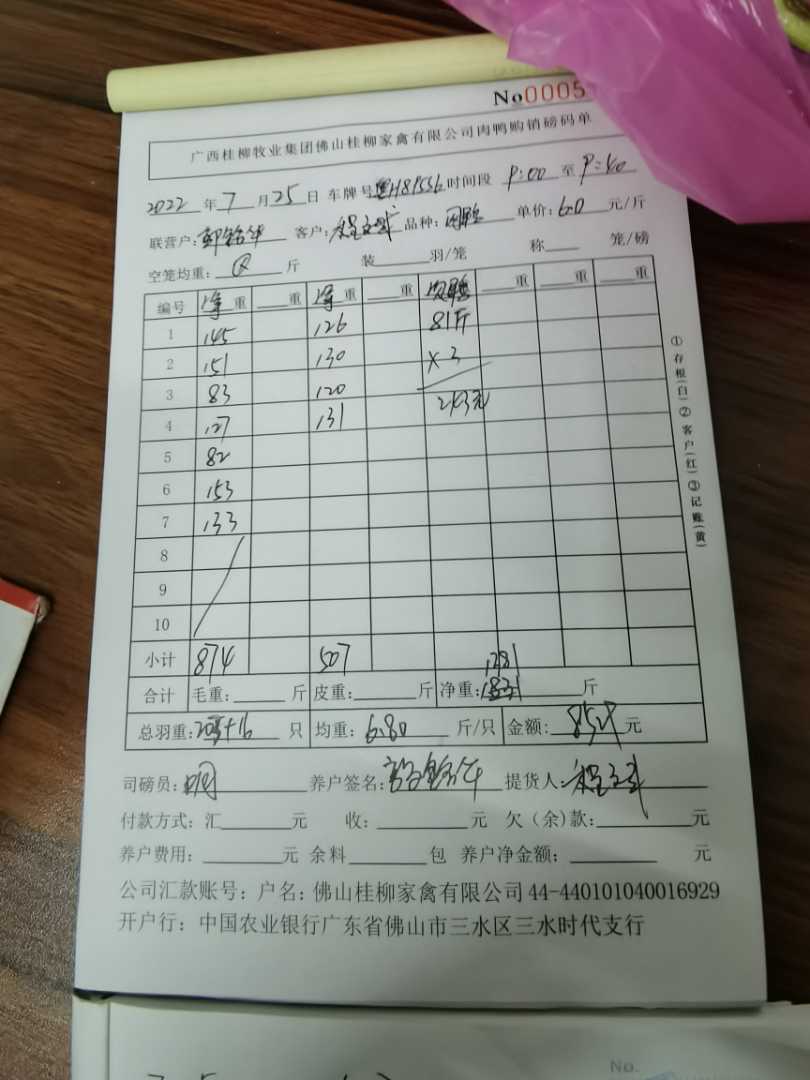 No0005
广西桂柳牧业集团佛山桂柳家禽有限公司肉鸭购销磅码单
2022年7月25日 车牌号 时间段 至
联营户: 客户: 品种: 单价:6.0元/斤
空笼均重: 斤 装 羽/笼 称 笼/磅
编号 净重 重 净重 重 重 重 重
1 145 126 81斤
2 151 130 ×3
3 83 120
4 127 131 243元
5 82
6 153
7 133
8
9
10
小计 874 507 1281
合计 毛重: 斤 皮重: 斤 净重: 斤
总羽重: +16 只 均重:6.80斤/只 金额: 元
司磅员: 养户签名: 提货人:
付款方式:汇 元 收: 元 欠(余)款: 元
养户费用: 元 余料 包 养户净金额: 元
公司汇款账号:户名:佛山桂柳家禽有限公司 44-440101040016929
开户行:中国农业银行广东省佛山市三水区三水时代支行
①存根(白)②客户(红)③记账(黄)
No.